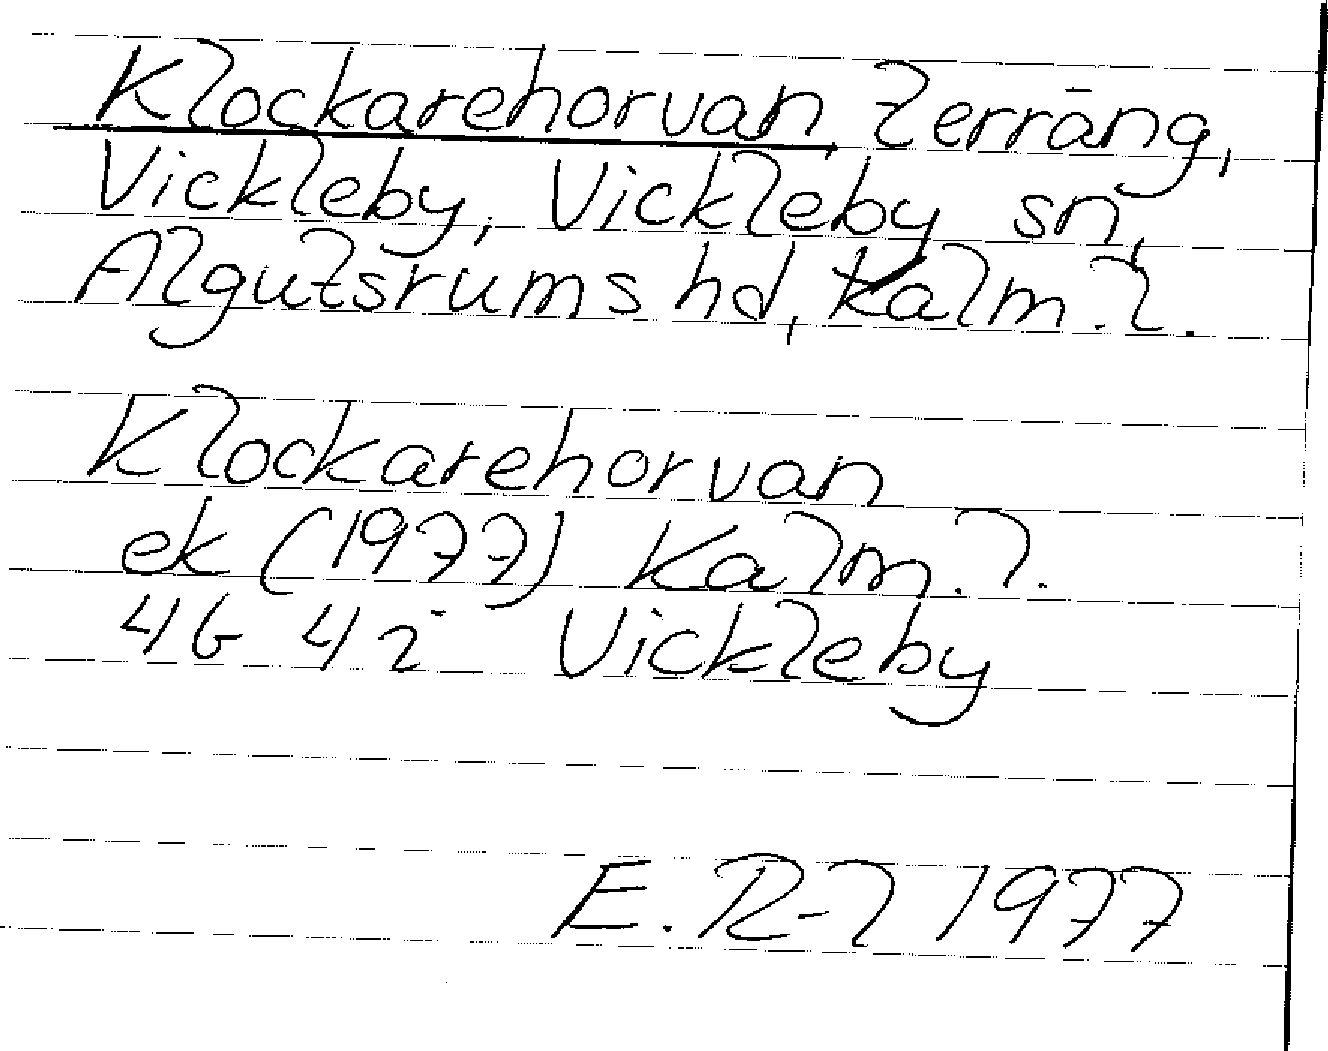 Klockarehorvan, terräng,
Vickleby, Vickleby sn,
Algutsrums hd, Kalm. l.
Klockarehorvan
ek (1977) Kalm. l.
4G 4i Vickleby
E. R-l 1977